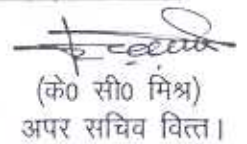 (के0 सी0 मिश्र)
अपर सचिव वित्त।